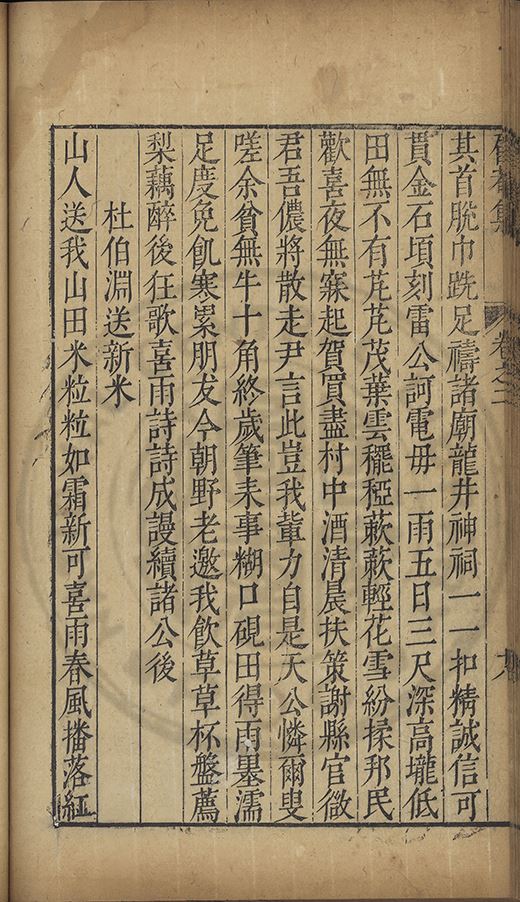 其首脫巾跣足禱諸廟龍井神祠一一扣精誠信可
貫金石頃刻雷公訶電毋一雨五日三尺深高壠低
田無不有芃芃茂葉雲襬稏蔌蔌輕花雪紛揉邦民
歡喜夜無寐起賀買盡村中酒清晨扶策謝縣官微
君吾儂將散走尹言此豈我輩力自是天公憐爾叟
嗟余貧無牛十角終歲筆耒事糊口硯田得雨墨濡
足度免飢寒累朋友今朝野老邀我飲草草杯盤薦
梨藕醉後狂歌喜雨詩詩成謾續諸公後
杜伯淵送新米
山人送我山田米粒粒如霜新可喜雨春風播落紅
卷之二
九